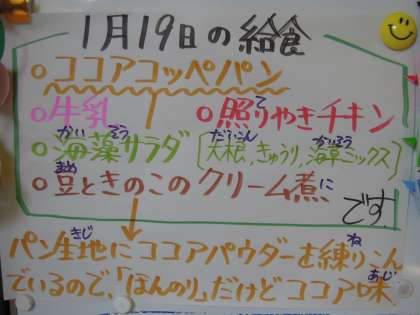 1月19日の給食
○ココアコッペパン
○牛乳
○照りやきチキン
○海藻サラダ
〔大根、きゅうり、海草ミックス〕
○豆ときのこのクリーム煮
です。
パン生地にココアパウダーを練りこん
でいるので、「ほんのり」だけどココア味、